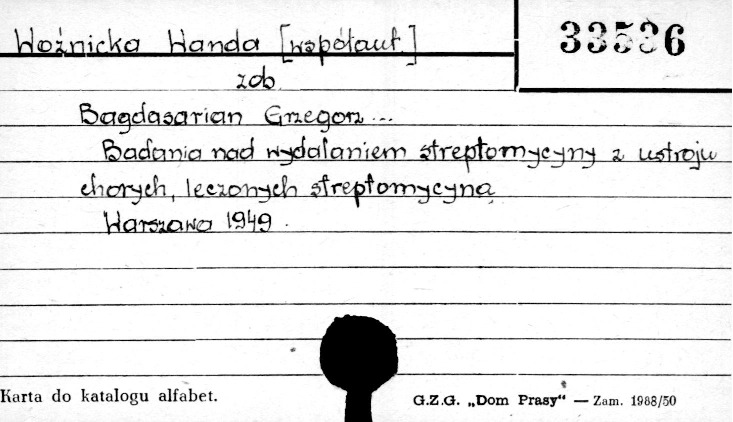 Woźnicka Wanda [współaut.]
33536
zob.
Bagdasarian Grzegorz...
Badania nad wydalaniem streptomycyny z ustroju
chorych, leczonych streptomycyną
Warszawa 1949.
Karta do katalogu alfabet.
G.Z.G. „Dom Prasy“ — Zam. 1988/50